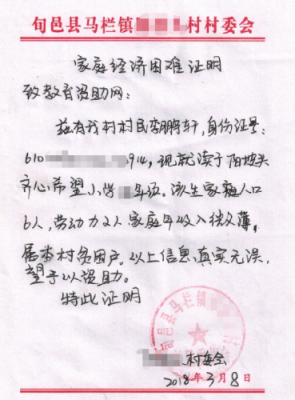 旬邑县马栏镇 村村委会
家庭经济困难证明
致教育资助网：
兹有我村村民李鹏轩，身份证号：
610 914，现就读于阳坡头
齐心希望小学 年级。该生家庭人口
6人，劳动力2人家庭年收入微薄，
属本村贫困户。以上信息真实无误，
望予以资助。
特此证明
旬邑县马栏镇
村委会
2018年3月8日